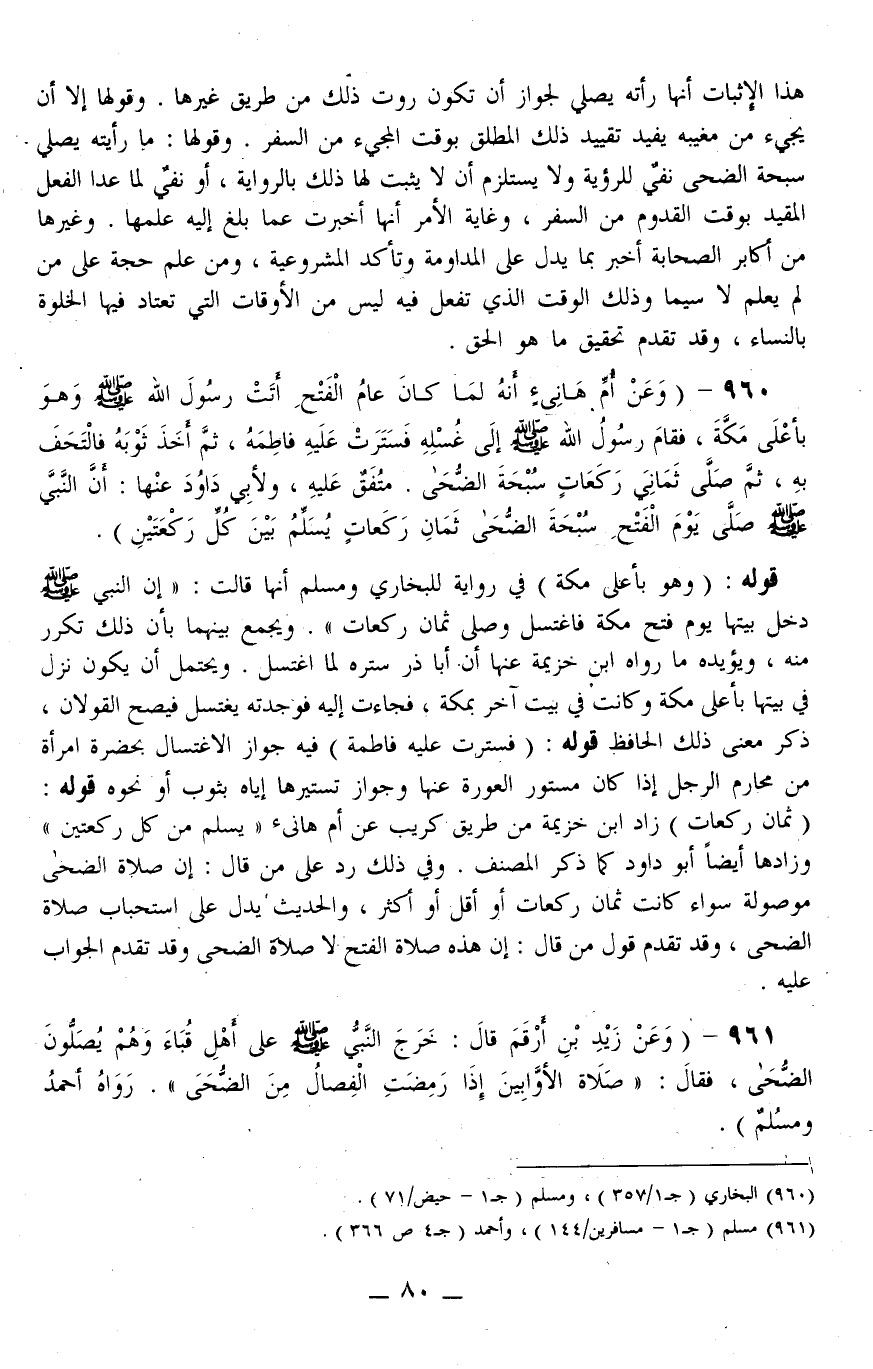 هذا الإثبات أنها رأته يصلي لجواز أن تكون روت ذلك من طريق غيرها . وقولها إلا أن
يجيء من مغيبه يفيد تقييد ذلك المطلق بوقت المجيء من السفر . وقولها : ما رأيته يصلي
سبحة الضحى نفيٌ للرؤية ولا يستلزم أن لا يثبت لها ذلك بالرواية ، أو نفيٌ لما عدا الفعل
المقيد بوقت القدوم من السفر ، وغاية الأمر أنها أخبرت عما بلغ إليه علمها . وغيرها
من أكابر الصحابة أخبر بما يدل على المداومة وتأكد المشروعية ، ومن علم حجة على من
لم يعلم لا سيما وذلك الوقت الذي تفعل فيه ليس من الأوقات التي تعتاد فيها الخلوة
بالنساء ، وقد تقدم تحقيق ما هو الحق .
٩٦٠ – ( وَعَنْ أُمِّ هَـانِىءٍ أَنهُ لمَـا كـانَ عامُ الْفَتْحِ أَتَتْ رسُولَ الله ﷺ وَهـوَ
بأعْلَى مَكَّةَ ، فقامَ رسولُ الله ﷺ إلَى غُسْلِهِ فَسَتَرَتْ عَلَيهِ فاطِمَهُ ، ثمَّ أَخَذَ ثَوْبَهُ فالْتَحَفَ
بهِ ، ثمَّ صَلَّى ثَمَانِيَ رَكَعَاتٍ سُبْحَةَ الضُّحَىٰ . متُفَقٌ عَليهِ ، ولأبي دَاوُدَ عنْها : أَنَّ النَّبيَّ
ﷺ صَلَّى يَوْمَ الْفَتْحِ سُبْحَةَ الضُّحَىٰ ثَمَانِ رَكَعاتٍ يُسَلِّمُ بَيْنَ كُلِّ رَكْعَتَيْنِ ) .
قوله : ( وهو بأعلى مكة ) في رواية للبخاري ومسلم أنها قالت : « إن النبي ﷺ
دخل بيتها يوم فتح مكة فاغتسل وصلى ثمان ركعات » . ويجمع بينهما بأن ذلك تكرر
منه ، ويؤيده ما رواه ابن خزيمة عنها أن أبا ذر ستره لما اغتسل . ويحتمل أن يكون نزل
في بيتها بأعلى مكة وكانت في بيت آخر بمكة ، فجاءت إليه فوجدته يغتسل فيصح القولان ،
ذكر معنى ذلك الحافظ قوله : ( فسترت عليه فاطمة ) فيه جواز الاغتسال بحضرة امرأة
من محارم الرجل إذا كان مستور العورة عنها وجواز تستيرها إياه بثوب أو نحوه قوله :
( ثمان ركعات ) زاد ابن خزيمة من طريق كريب عن أم هانىء « يسلم من كل ركعتين »
وزادها أيضاً أبو داود كما ذكر المصنف . وفي ذلك رد على من قال : إن صلاة الضحىٰ
موصولة سواء كانت ثمان ركعات أو أقل أو أكثر ، والحديث يدل على استحباب صلاة
الضحى ، وقد تقدم قول من قال : إن هذه صلاة الفتح لا صلاة الضحى وقد تقدم الجواب
عليه .
٩٦١ – ( وَعَنْ زَيْدِ بْنِ أَرْقَمَ قالَ : خَرَجَ النَّبيُّ ﷺ على أَهْلِ قُبَاءَ وَهُمْ يُصَلُّونَ
الضُّحَىٰ ، فقالَ : « صَلَاة الأوَّابينَ إذَا رَمِضَتِ الْفِصالُ مِنَ الضُّحَىَ » . رَوَاهُ أحمدُ
ومسُلمٌ ) .
(٩٦٠) البخاري ( جـ٣٥٧/١ ) ، ومسلم ( جـ١ – حيض/٧١ ) .
(٩٦١) مسلم ( جـ١ – مسافرين/١٤٤ ) ، وأحمد ( جـ٤ ص ٣٦٦ ) .
— ٨٠ —